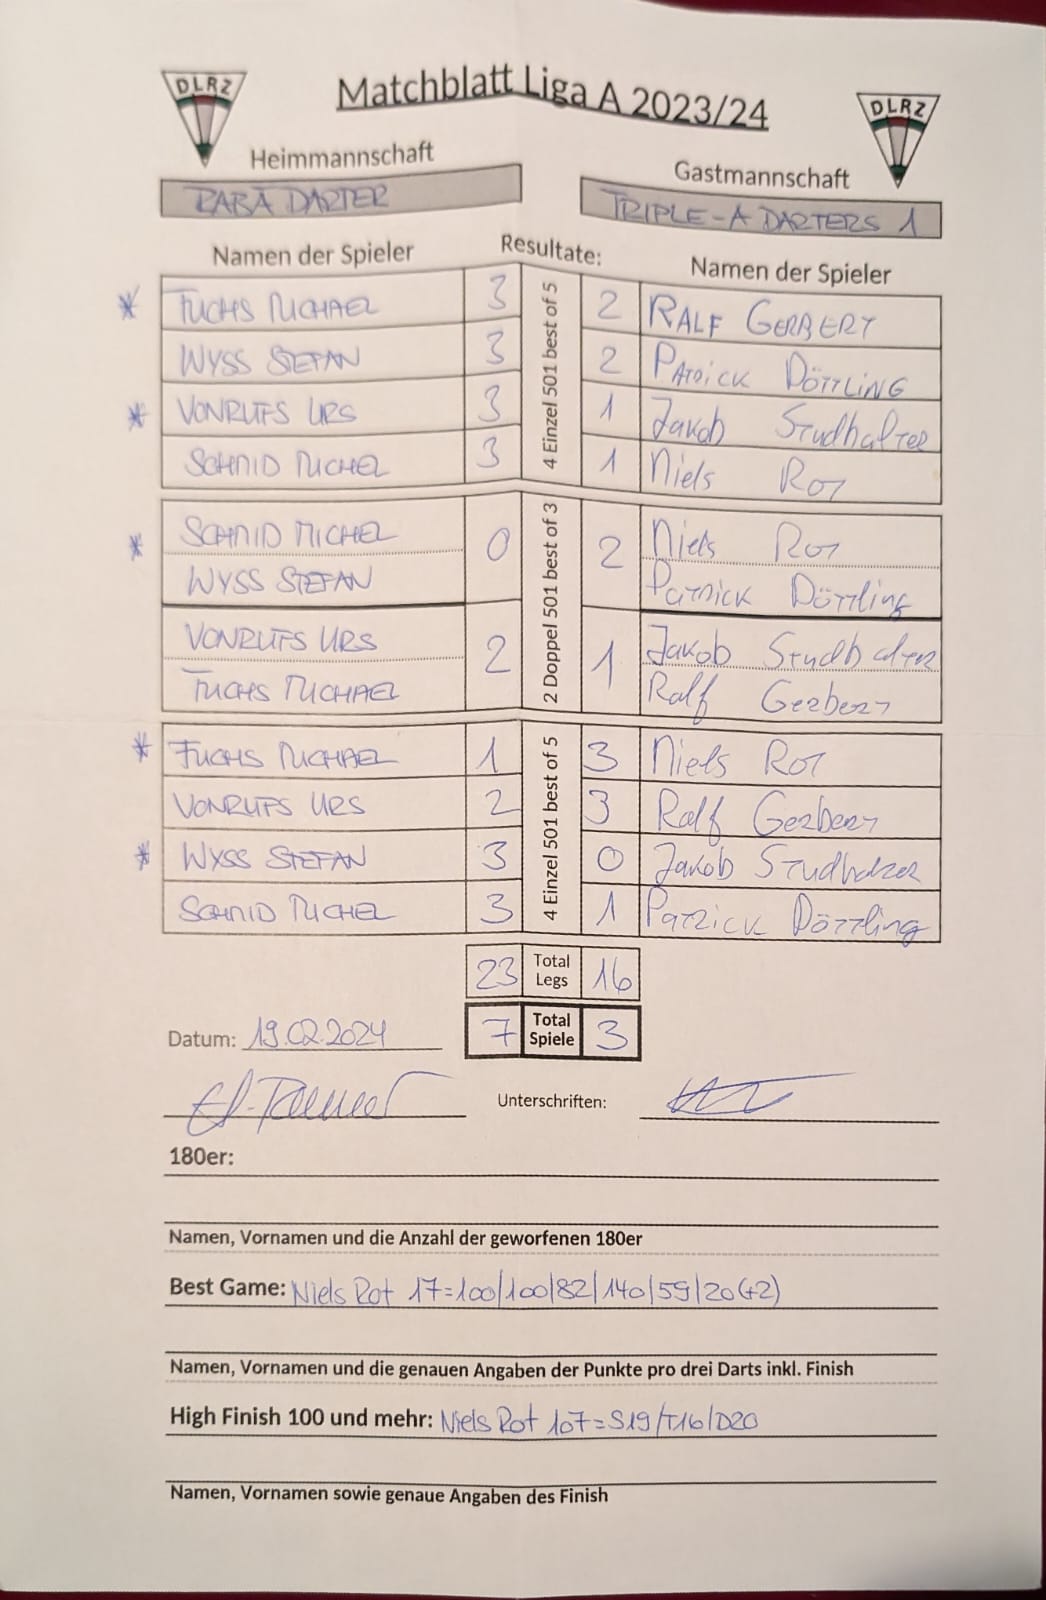 DLRZ Matchblatt Liga A 2023/24 DLRZ
Heimmannschaft Gastmannschaft
RABÄ DARTER TRIPLE-A DARTERS 1
Namen der Spieler Resultate: Namen der Spieler
4 Einzel 501 best of 5
* FUCHS MICHAEL 3 2 RALF GERBERT
WYSS STEFAN 3 2 PATRICK DÖTTLING
* VONRUFS URS 3 1 Jakob Studhalter
SCHMID MICHEL 3 1 Niels Rot
2 Doppel 501 best of 3
* SCHMID MICHEL 0 2 Niels Rot
WYSS STEFAN Patrick Döttling
VONRUFS URS 2 1 Jakob Studhalter
FUCHS MICHAEL Ralf Gerbert
4 Einzel 501 best of 5
* FUCHS MICHAEL 1 3 Niels Rot
VONRUFS URS 2 3 Ralf Gerbert
* WYSS STEFAN 3 0 Jakob Studhalter
SCHMID MICHEL 3 1 Patrick Döttling
23 Total Legs 16
Datum: 19.02.2024 7 Total Spiele 3
Unterschriften:
180er:
Namen, Vornamen und die Anzahl der geworfenen 180er
Best Game: Niels Rot 17=100/100/82/140/59/20(+2)
Namen, Vornamen und die genauen Angaben der Punkte pro drei Darts inkl. Finish
High Finish 100 und mehr: Niels Rot 107=S19/T16/D20
Namen, Vornamen sowie genaue Angaben des Finish